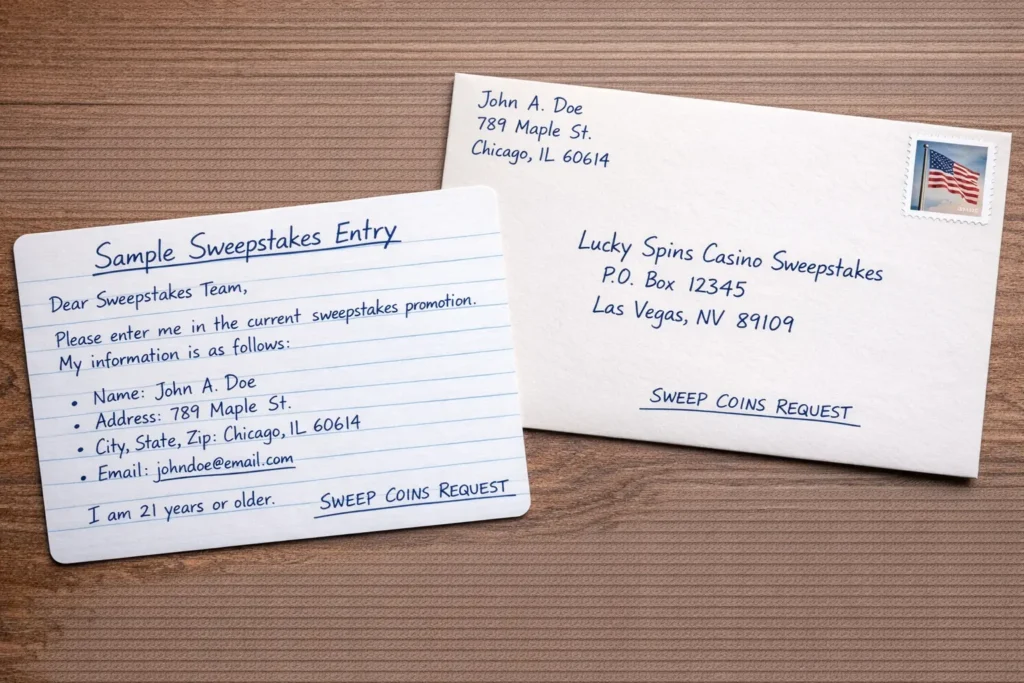 Sample Sweepstakes Entry
Dear Sweepstakes Team,
Please enter me in the current sweepstakes promotion.
My information is as follows:
• Name: John A. Doe
• Address: 789 Maple St.
• City, State, Zip: Chicago, IL 60614
• Email: johndoe@email.com
I am 21 years or older.
SWEEP COINS REQUEST
John A. Doe
789 Maple St.
Chicago, IL 60614
Lucky Spins Casino Sweepstakes
P.O. Box 12345
Las Vegas, NV 89109
SWEEP COINS REQUEST